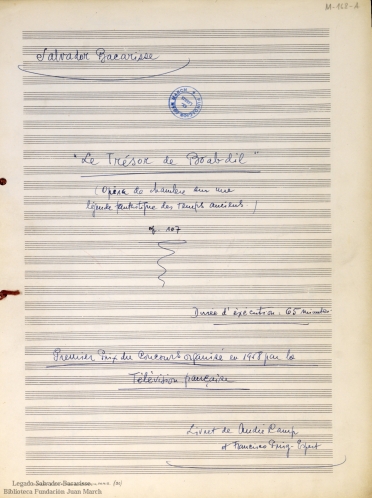 M-128-A
Salvador Bacarisse
"Le Trésor de Boabdil"
(Opéra de chambre sur une
légende fantastique des temps anciens)
op. 107
Durée d'exécution : 65 minutes
Premier Prix du Concours organisé en 1958 par la
Télévision française
Livret de André Camp
et Francisco Puig-Espert
Legado Salvador Bacarisse.
Biblioteca Fundación Juan March